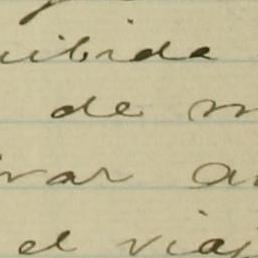 uibida
de m
var a
el viaj